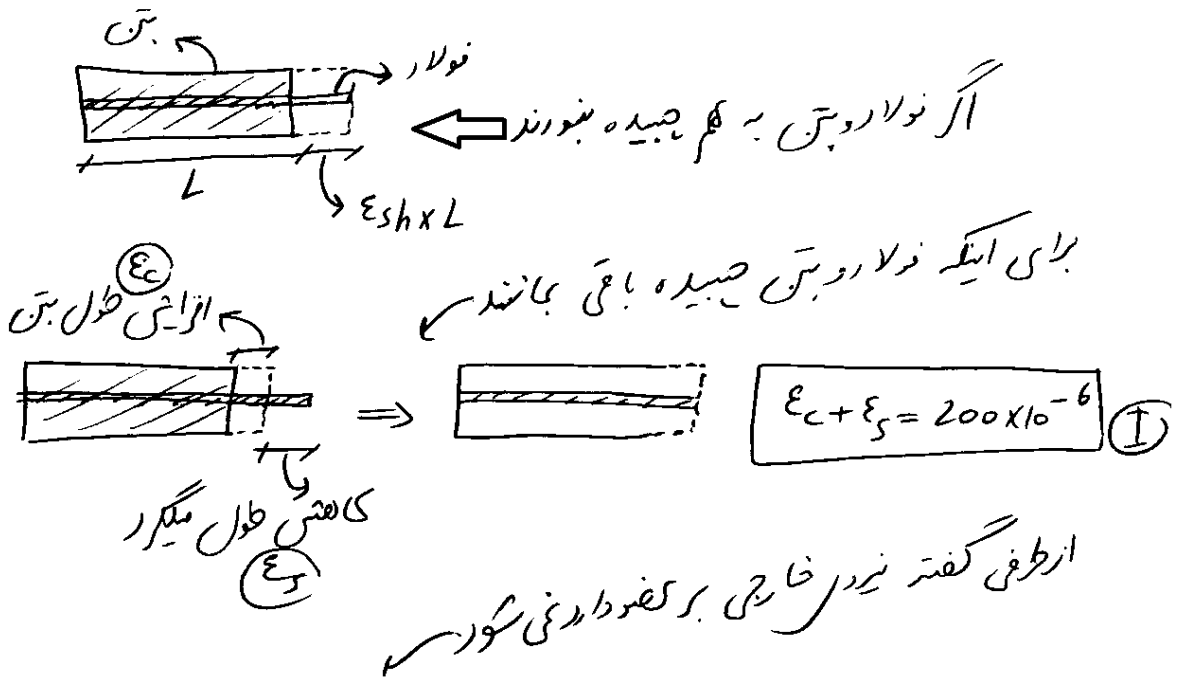 بتن
فولاد
اگر فولاد و بتن به هم چسبیده نبودند
L
εsh×L
برای اینکه فولاد و بتن چسبیده باقی بمانند
εc
افزایش طول بتن
εc + εs = 200×10⁻⁶
I
کاهش طول میلگرد
εs
از طرفی گفته نیروی خارجی بر عضو وارد نمی شود